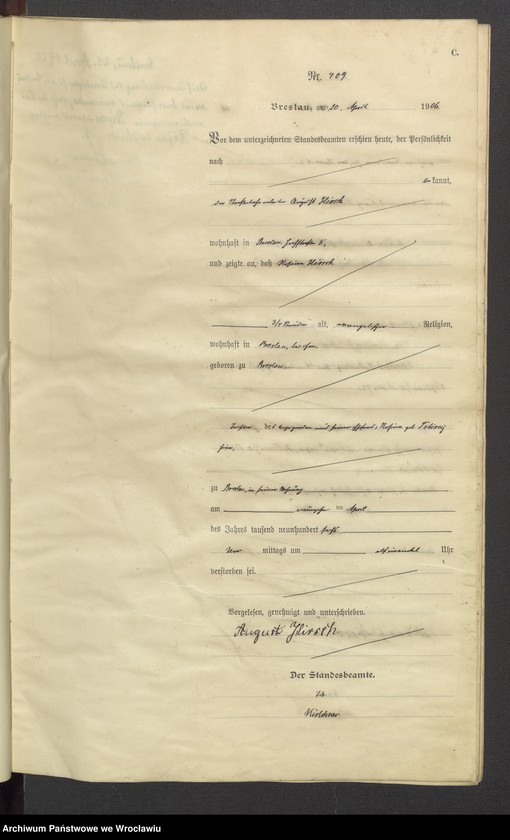 C.
Nr. 409.
Breslau, am 20. April 1906.
Vor dem unterzeichneten Standesbeamten erschien heute, der Persönlichkeit
nach
kannt,
der August Hirsch
wohnhaft in Breslau 5,
und zeigte an, daß Hirsch
3/4 Stunden alt, evangelischer Religion,
wohnhaft in Breslau, bei ihm,
geboren zu Breslau,
Tochter des Anzeigenden und seiner Ehefrau, geb.
zu Breslau, in seiner Wohnung
am April
des Jahres tausend neunhundert sechs
Vor mittags um Uhr
verstorben sei.
Vorgelesen, genehmigt und unterschrieben.
August Hirsch
Der Standesbeamte.
Archiwum Państwowe we Wrocławiu